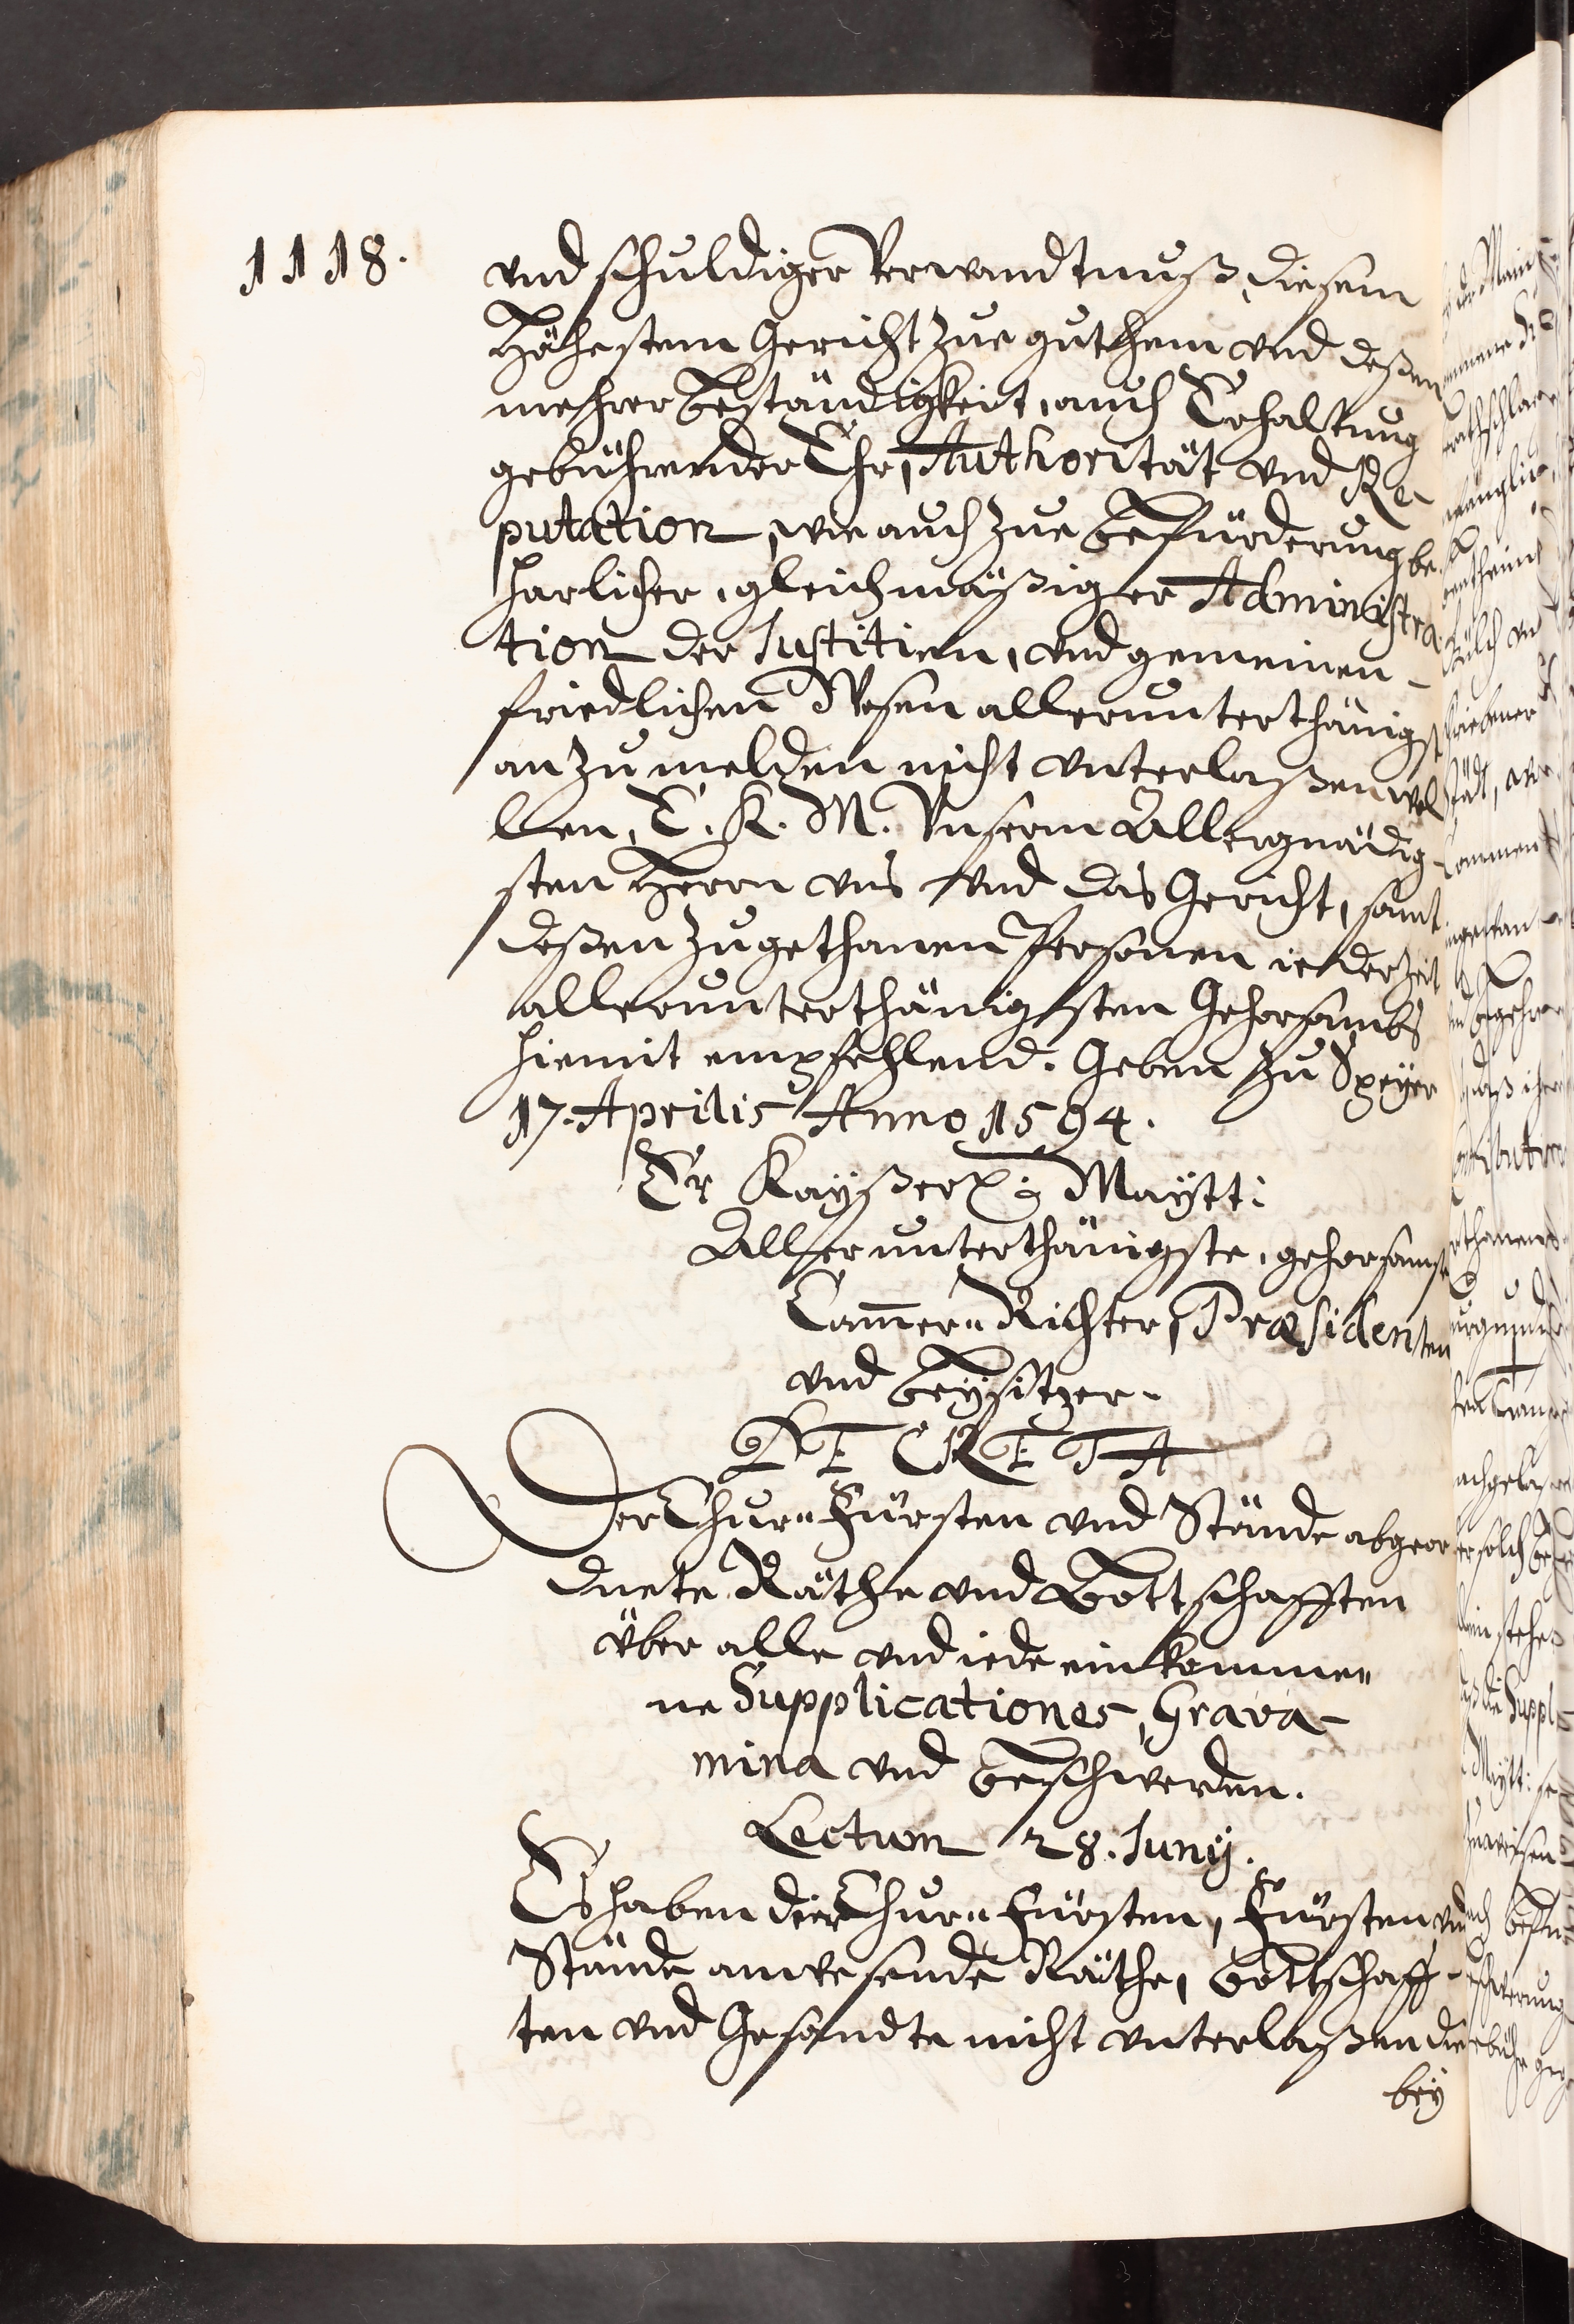 1118.
vnd schuldiger Verwandtnuß, diesem
Höhestem Gericht zue guthem vnd deßen
mehrer Beständigkeit, auch Erhaltung
gebührender Ehr, Authorität vnd Re-
putation, wie auch zue Befürderung be-
harlicher, gleichmäßiger Administra-
tion der Justitien, vnd gemeinen
friedlichen Wesen allerunterthänigst
anzumelden nicht vnterlaßen wol
len, E. K. M. Vnserm Allergnädig-
sten Herrn vns vnd das Gericht, samt
deßen zugethanen Personen iederzeit
allerunterthänigsten Gehorsambs
hiemit empfehlend. Geben zu Speyer
17. Aprilis Anno 1594.
Er Kayßerl: Maytt:
Allerunterthänigste, gehorsamste
Cam̄er- Richter, Præsidenten
und Beysitzer.
DECRETA
Der Chur- Fürsten vnd Stände abgeor
dnete Räthe vnd Bottschafften
über alle vnd iede einkomme-
ne Supplicationes, Grava-
mina vnd Beschwerden.
Lectum 28. Juny.
Es haben der Chur- Fürsten, Fürsten vnd
Stände anwesende Räthe, Bottschaff-
ten vnd Gesandte nicht vnterlaßen die
bey